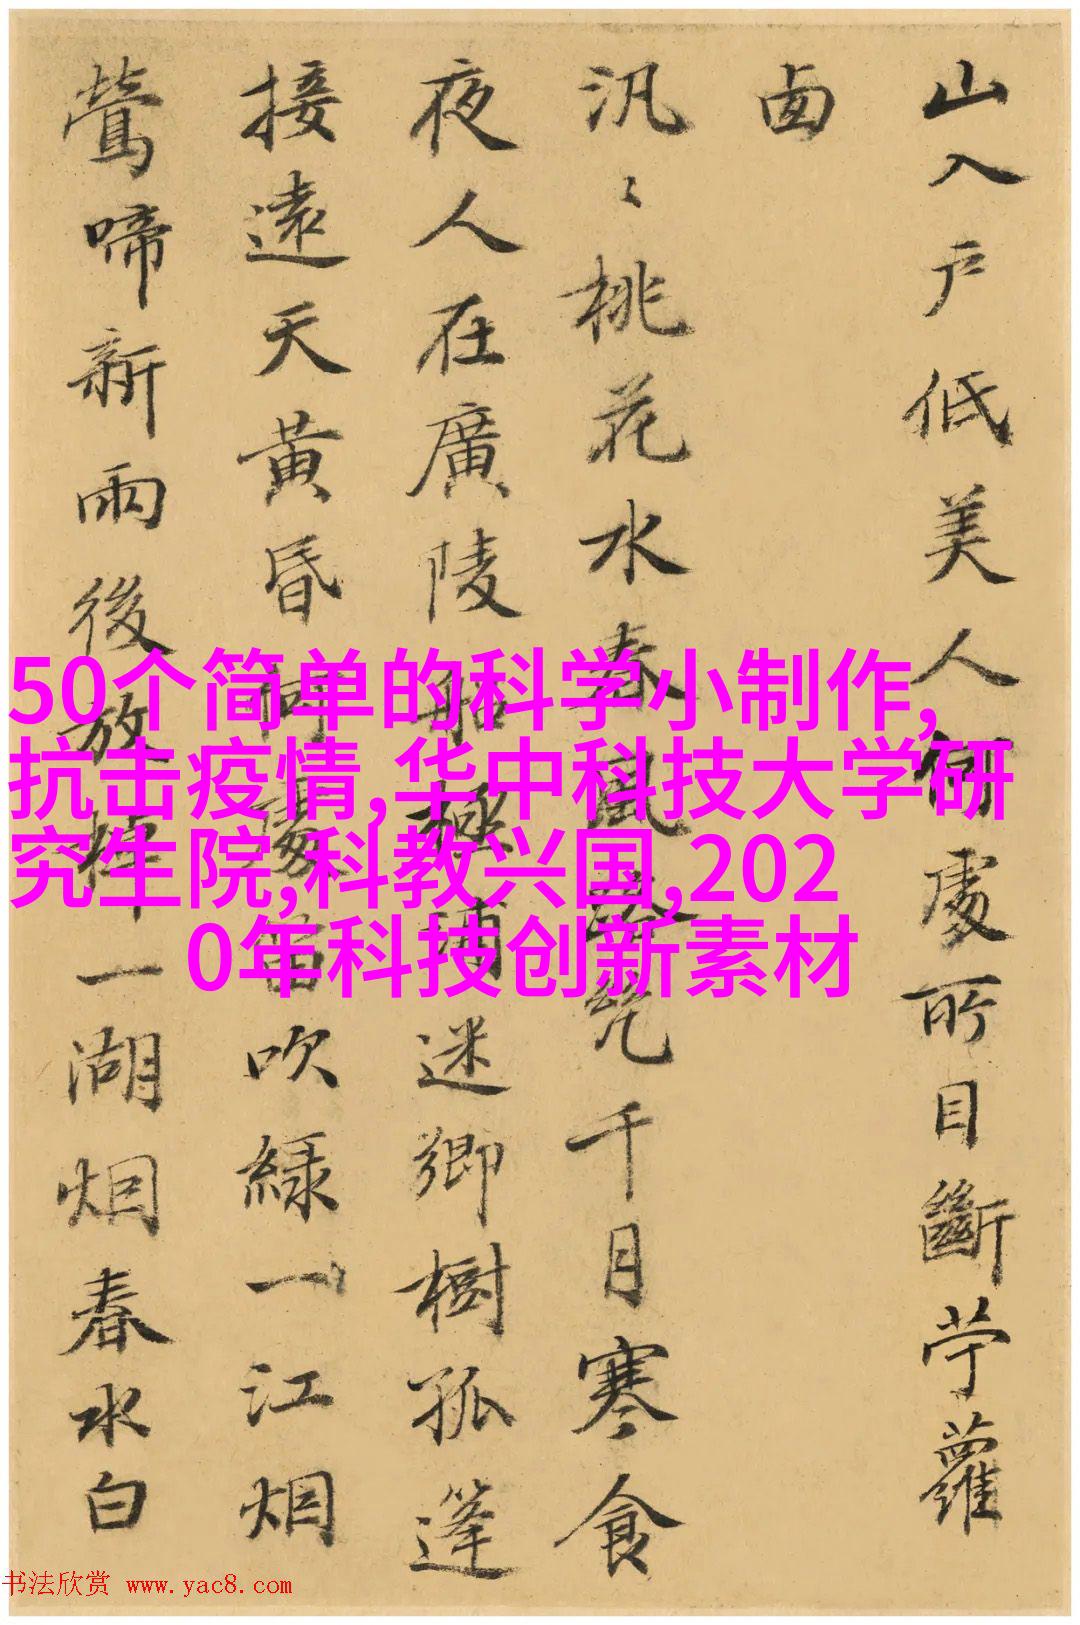 山入户低美人何處所目斷苧蘿
卤
汎〻桃花水春風千月寒食
夜人在廣陵船極浦迷卿樹孤篷
接遠天黄昏何處笛吹緑一江烟
鶯啼新雨後放棹一湖烟春水白
50个简单的科学小制作,
抗击疫情,华中科技大学研
究生院,科教兴国,202
0年科技创新素材
书法欣赏 www.yac8.com